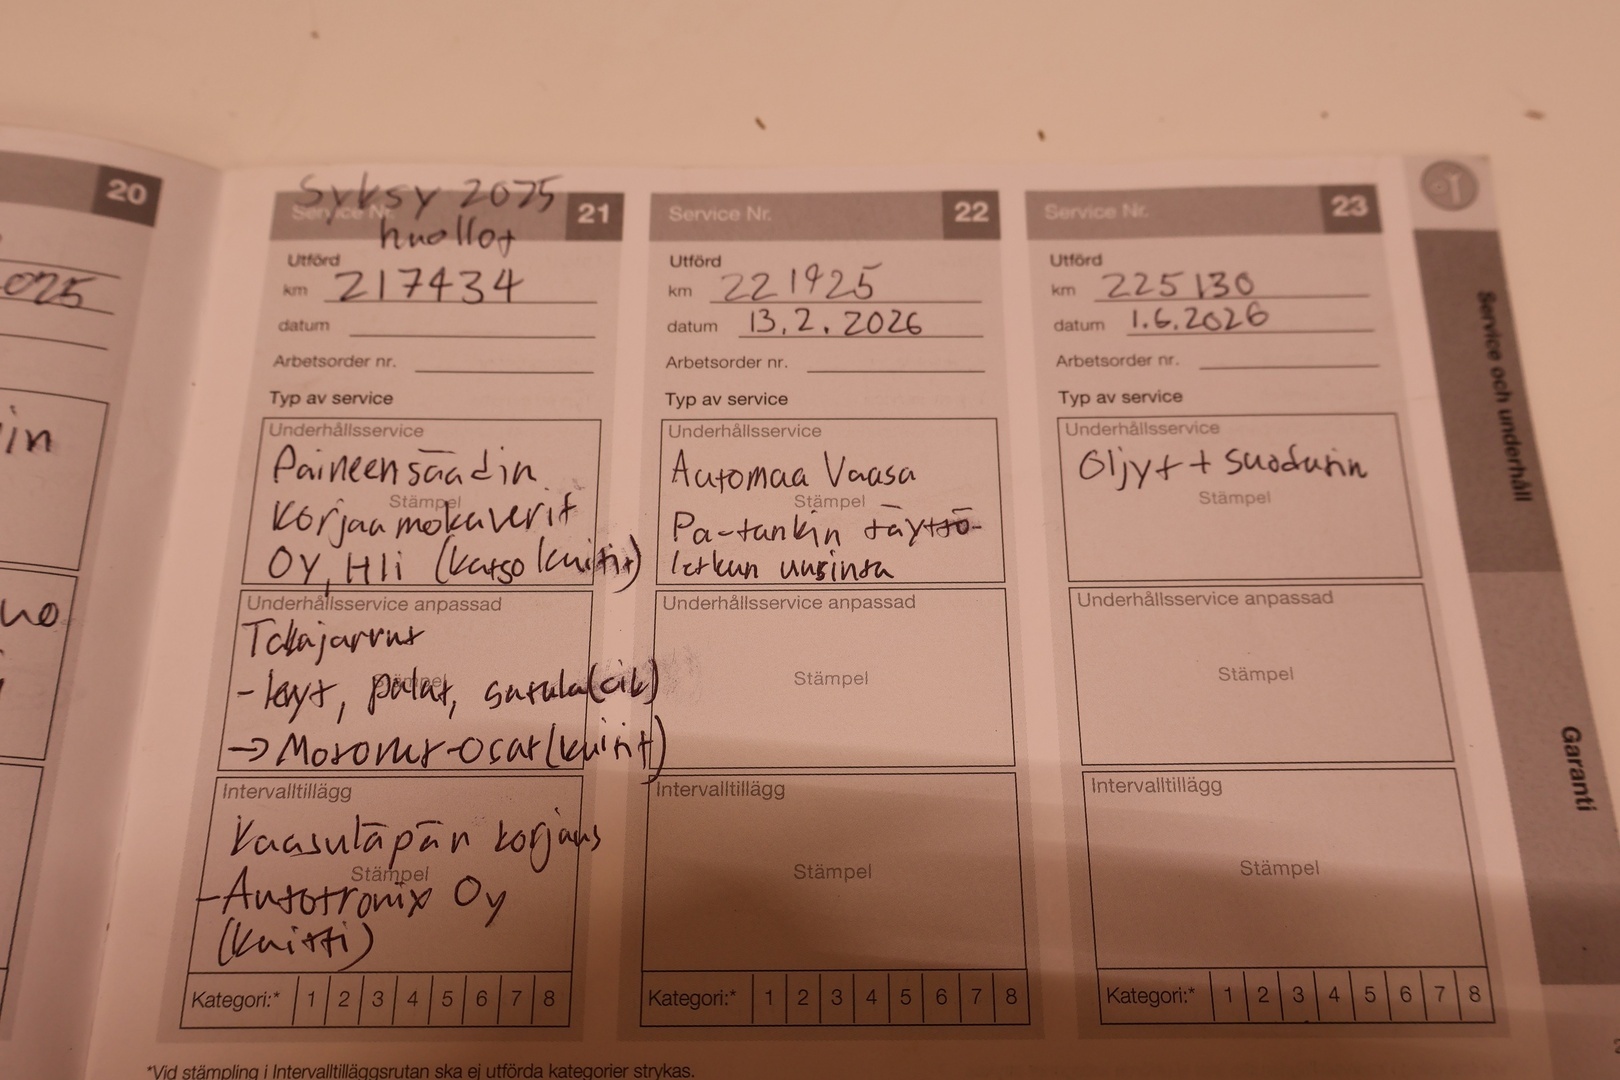 20
025
in
uo
Syksy 2025
huollot
Service Nr. 21
Utförd
km 217434
datum
Arbetsorder nr.
Typ av service
Underhållsservice
Paineensäädin
Stämpel
Korjaamokaverit
OY, Hli (katso kuitit)
Underhållsservice anpassad
Takajarrut
Stämpel
- levyt, palat, satula(oik)
→ Motonet-osat (kuitit)
Intervalltillägg
Kaasuläpän korjaus
Stämpel
- Autotronix Oy
(kuitti)
Kategori:* 1 2 3 4 5 6 7 8
Service Nr. 22
Utförd
km 221925
datum 13.2.2026
Arbetsorder nr.
Typ av service
Underhållsservice
Automaa Vaasa
Stämpel
Pa-tankin täyttö-
letkun uusinta
Underhållsservice anpassad
Stämpel
Intervalltillägg
Stämpel
Kategori:* 1 2 3 4 5 6 7 8
Service Nr. 23
Utförd
km 225130
datum 1.6.2026
Arbetsorder nr.
Typ av service
Underhållsservice
Öljyt + suodatin
Stämpel
Underhållsservice anpassad
Stämpel
Intervalltillägg
Stämpel
Kategori:* 1 2 3 4 5 6 7 8
*Vid stämpling i Intervalltilläggsrutan ska ej utförda kategorier strykas.
Service och underhåll
Garanti